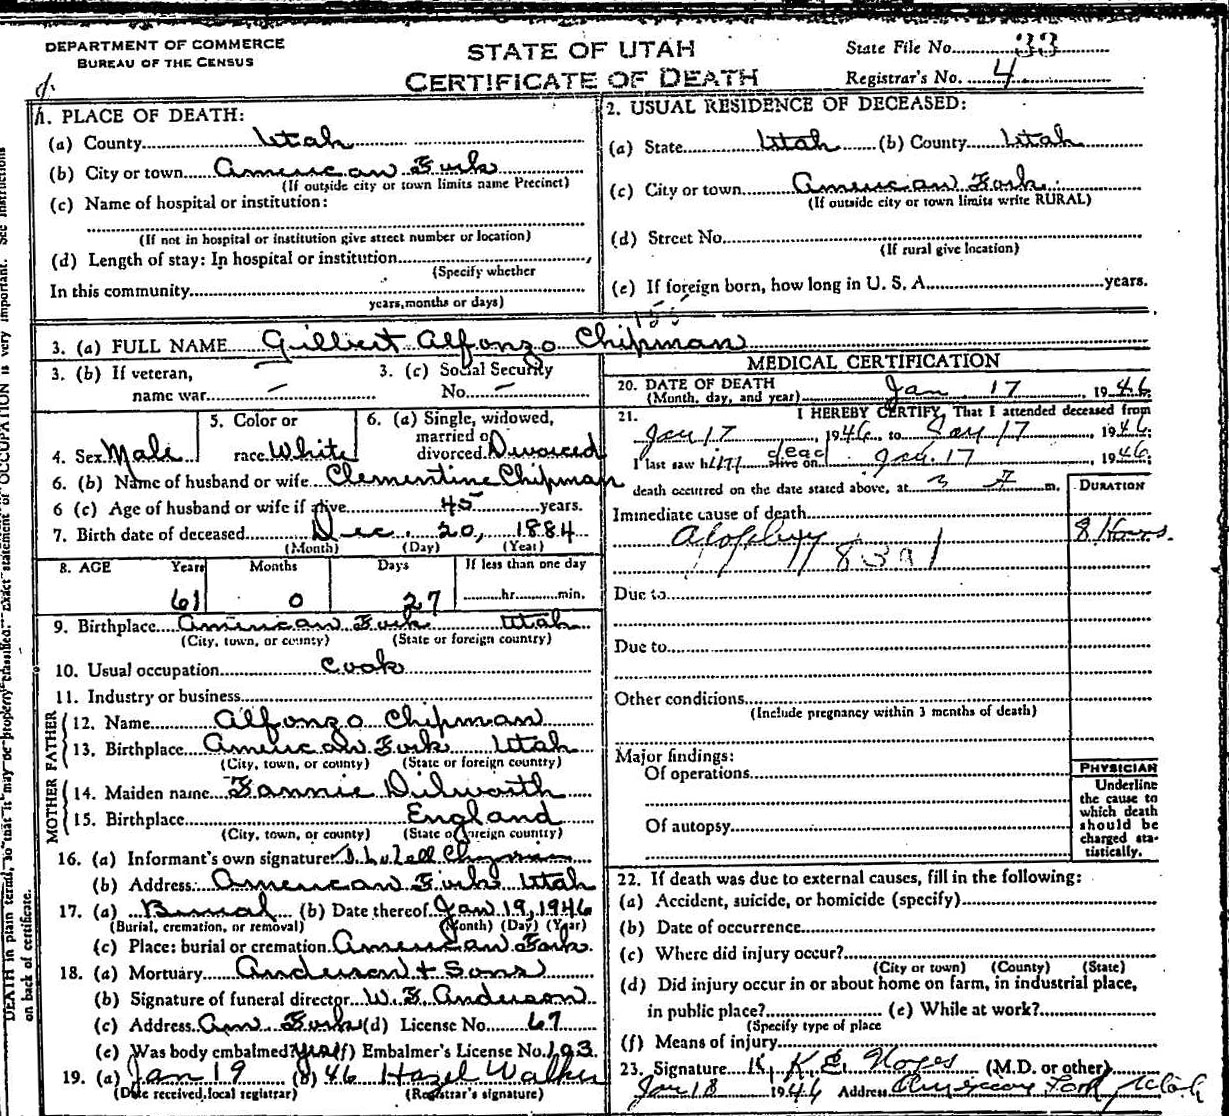 DEPARTMENT OF COMMERCE
BUREAU OF THE CENSUS
STATE OF UTAH
CERTIFICATE OF DEATH
State File No. 33
Registrar's No. 4
1. PLACE OF DEATH:
(a) County Utah
(b) City or town American Fork
(If outside city or town limits name Precinct)
(c) Name of hospital or institution:
(If not in hospital or institution give street number or location)
(d) Length of stay: In hospital or institution
(Specify whether
In this community
years, months or days)
2. USUAL RESIDENCE OF DECEASED:
(a) State Utah (b) County Utah
(c) City or town American Fork
(If outside city or town limits write RURAL)
(d) Street No.
(If rural give location)
(e) If foreign born, how long in U. S. A. years.
3. (a) FULL NAME Gilbert Alfonzo Chipman
3. (b) If veteran, name war — 3. (c) Social Security No. —
4. Sex Male 5. Color or race White 6. (a) Single, widowed, married or divorced Divorced
6. (b) Name of husband or wife Clementine Chipman
6 (c) Age of husband or wife if alive 45 years.
7. Birth date of deceased Dec. 20, 1884
(Month) (Day) (Year)
8. AGE Years Months Days If less than one day
61 0 27 hr. min.
9. Birthplace American Fork Utah
(City, town, or county) (State or foreign country)
10. Usual occupation Cook
11. Industry or business
FATHER
12. Name Alfonzo Chipman
13. Birthplace American Fork Utah
(City, town, or county) (State or foreign country)
MOTHER
14. Maiden name Fannie Dilworth
15. Birthplace England
(City, town, or county) (State or foreign country)
16. (a) Informant's own signature Chipman
(b) Address American Fork Utah
17. (a) Burial (b) Date thereof Jan 19, 1946
(Burial, cremation, or removal) (Month) (Day) (Year)
(c) Place: burial or cremation American Fork
18. (a) Mortuary Anderson + Sons
(b) Signature of funeral director W. F. Anderson
(c) Address Am Fork (d) License No. 67
(e) Was body embalmed? yes (f) Embalmer's License No. 193
19. (a) Jan 19 (b) 46 Hazel Walker
(Date received, local registrar) (Registrar's signature)
MEDICAL CERTIFICATION
20. DATE OF DEATH Jan 17 1946
(Month, day, and year)
21. I HEREBY CERTIFY, That I attended deceased from
Jan 17, 1946, to Jan 17, 1946;
I last saw him dead alive on Jan. 17, 1946;
death occurred on the date stated above, at 3 m.
DURATION
Immediate cause of death
8 Hours.
Due to
Due to
Other conditions
(Include pregnancy within 3 months of death)
Major findings:
Of operations
Of autopsy
PHYSICIAN
Underline
the cause to
which death
should be
charged sta-
tistically.
22. If death was due to external causes, fill in the following:
(a) Accident, suicide, or homicide (specify)
(b) Date of occurrence
(c) Where did injury occur?
(City or town) (County) (State)
(d) Did injury occur in or about home on farm, in industrial place,
in public place? (e) While at work?
(Specify type of place
(f) Means of injury
23. Signature K. E. (M.D. or other)
Jan 18 1946 Address American Fork Utah
DEATH in plain terms, so that it may be properly classified. Exact statement of OCCUPATION is very important. See instructions
on back of certificate.